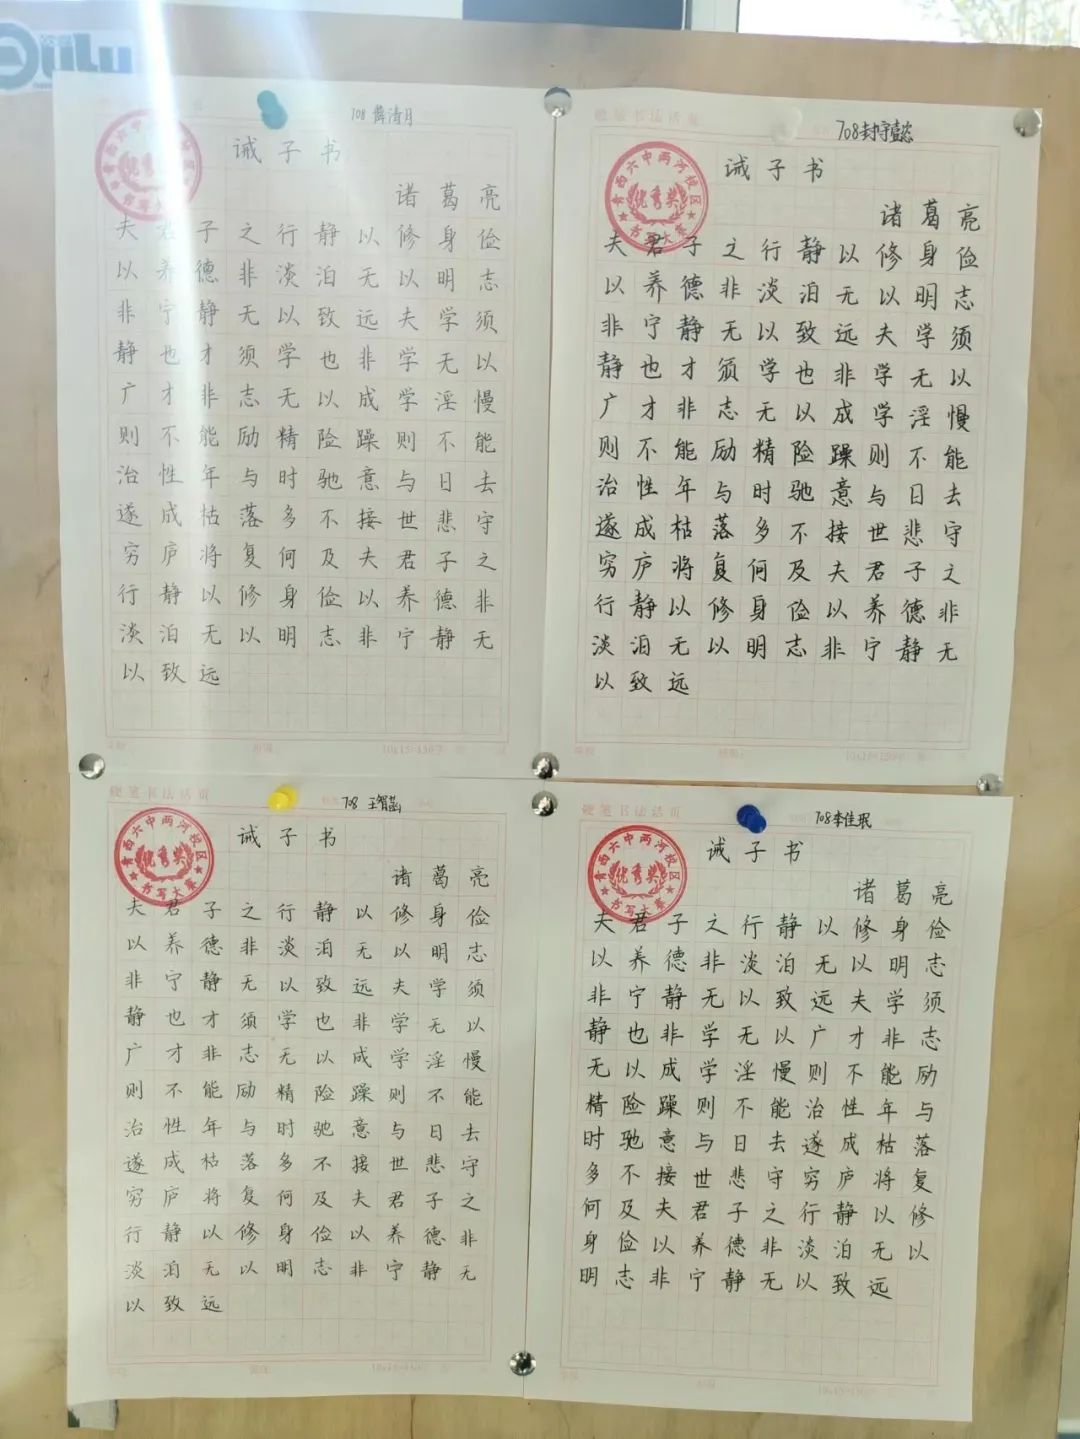 708 薛清月
诫子书
诸葛亮
夫君子之行静以修身俭
以养德非淡泊无以明志
非宁静无以致远夫学须
静也才须学也非学无以
广才非志无以成学淫慢
则不能励精险躁则不能
治性年与时驰意与日去
遂成枯落多不接世悲守
穷庐将复何及夫君子之
行静以修身俭以养德非
淡泊无以明志非宁静无
以致远
硬笔书法活页
青西六中两河校区
优秀奖
书写大赛
诫子书
诸葛亮
夫君子之行静以修身俭
以养德非淡泊无以明志
非宁静无以致远夫学须
静也才须学也非学无以
广才非志无以成学淫慢
则不能励精险躁则不能
治性年与时驰意与日去
遂成枯落多不接世悲守
穷庐将复何及夫君子之
行静以修身俭以养德非
淡泊无以明志非宁静无
以致远
硬笔书法活页
708 王智菡
青西六中两河校区
优秀奖
书写大赛
诫子书
诸葛亮
夫君子之行静以修身俭
以养德非淡泊无以明志
非宁静无以致远夫学须
静也才须学也非学无以
广才非志无以成学淫慢
则不能励精险躁则不能
治性年与时驰意与日去
遂成枯落多不接世悲守
穷庐将复何及夫君子之
行静以修身俭以养德非
淡泊无以明志非宁静无
以致远
硬笔书法活页
708李佳珉
青西六中两河校区
优秀奖
书写大赛
诫子书
诸葛亮
夫君子之行静以修身俭
以养德非淡泊无以明志
非宁静无以致远夫学须
静也非学无以广才非志
无以成学淫慢则不能励
精险躁则不能治性年与
时驰意与日去遂成枯落
多不接世悲守穷庐将复
何及夫君子之行静以修
身俭以养德非淡泊无以
明志非宁静无以致远